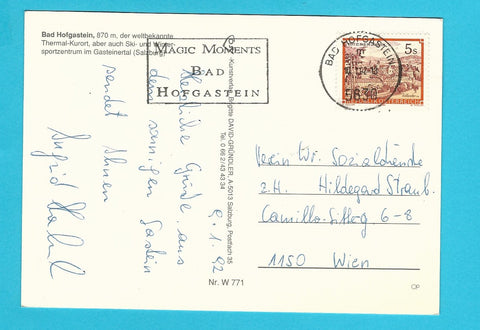 Bad Hofgastein, 870 m, der weltbekannte
Thermal-Kurort, aber auch Ski- und Winter-
sportzentrum im Gasteinertal (Salzburg)
MAGIC MOMENTS
BAD
HOFGASTEIN
BAD HOFGASTEIN
5630
5s
REPUBLIK ÖSTERREICH
Kunstverlag Brigitte DAVID-GRÜNDLER, A-5013 Salzburg, Postfach 35
Tel. 0 66 2/43 43 34
Nr. W 771
8.1.92
Herzliche Grüße aus
dem sonnigen Gastein
sendet Ihnen
Ingrid
Verein Wr. Sozialdienste
z.H. Hildegard Straub
Camillo-Sitteg 6-8
1150 Wien
CP